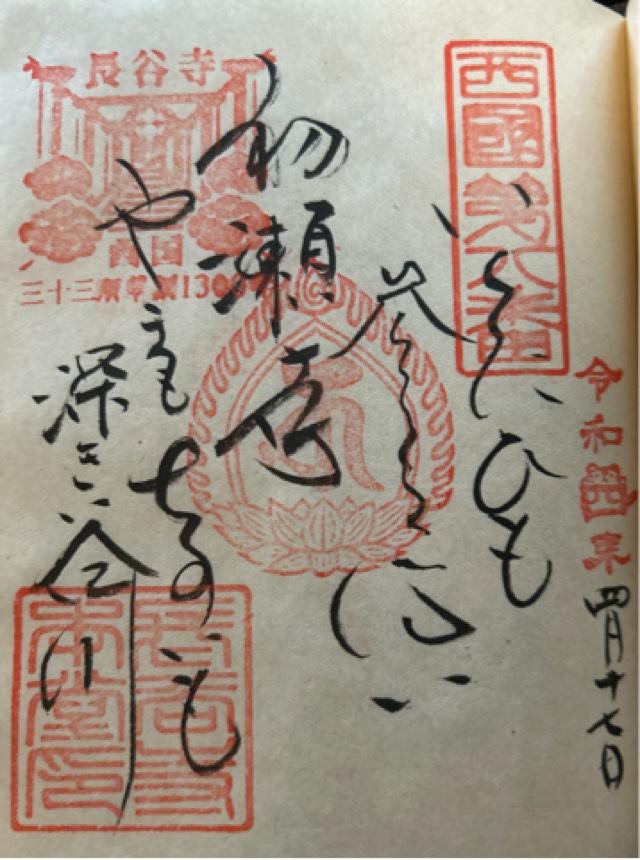 令和四年四月十七日
西國第八番
いくたひも
参る心は
初瀬寺
やまもちかひも
深き谷川
長谷寺
西国
三十三所草創1300年